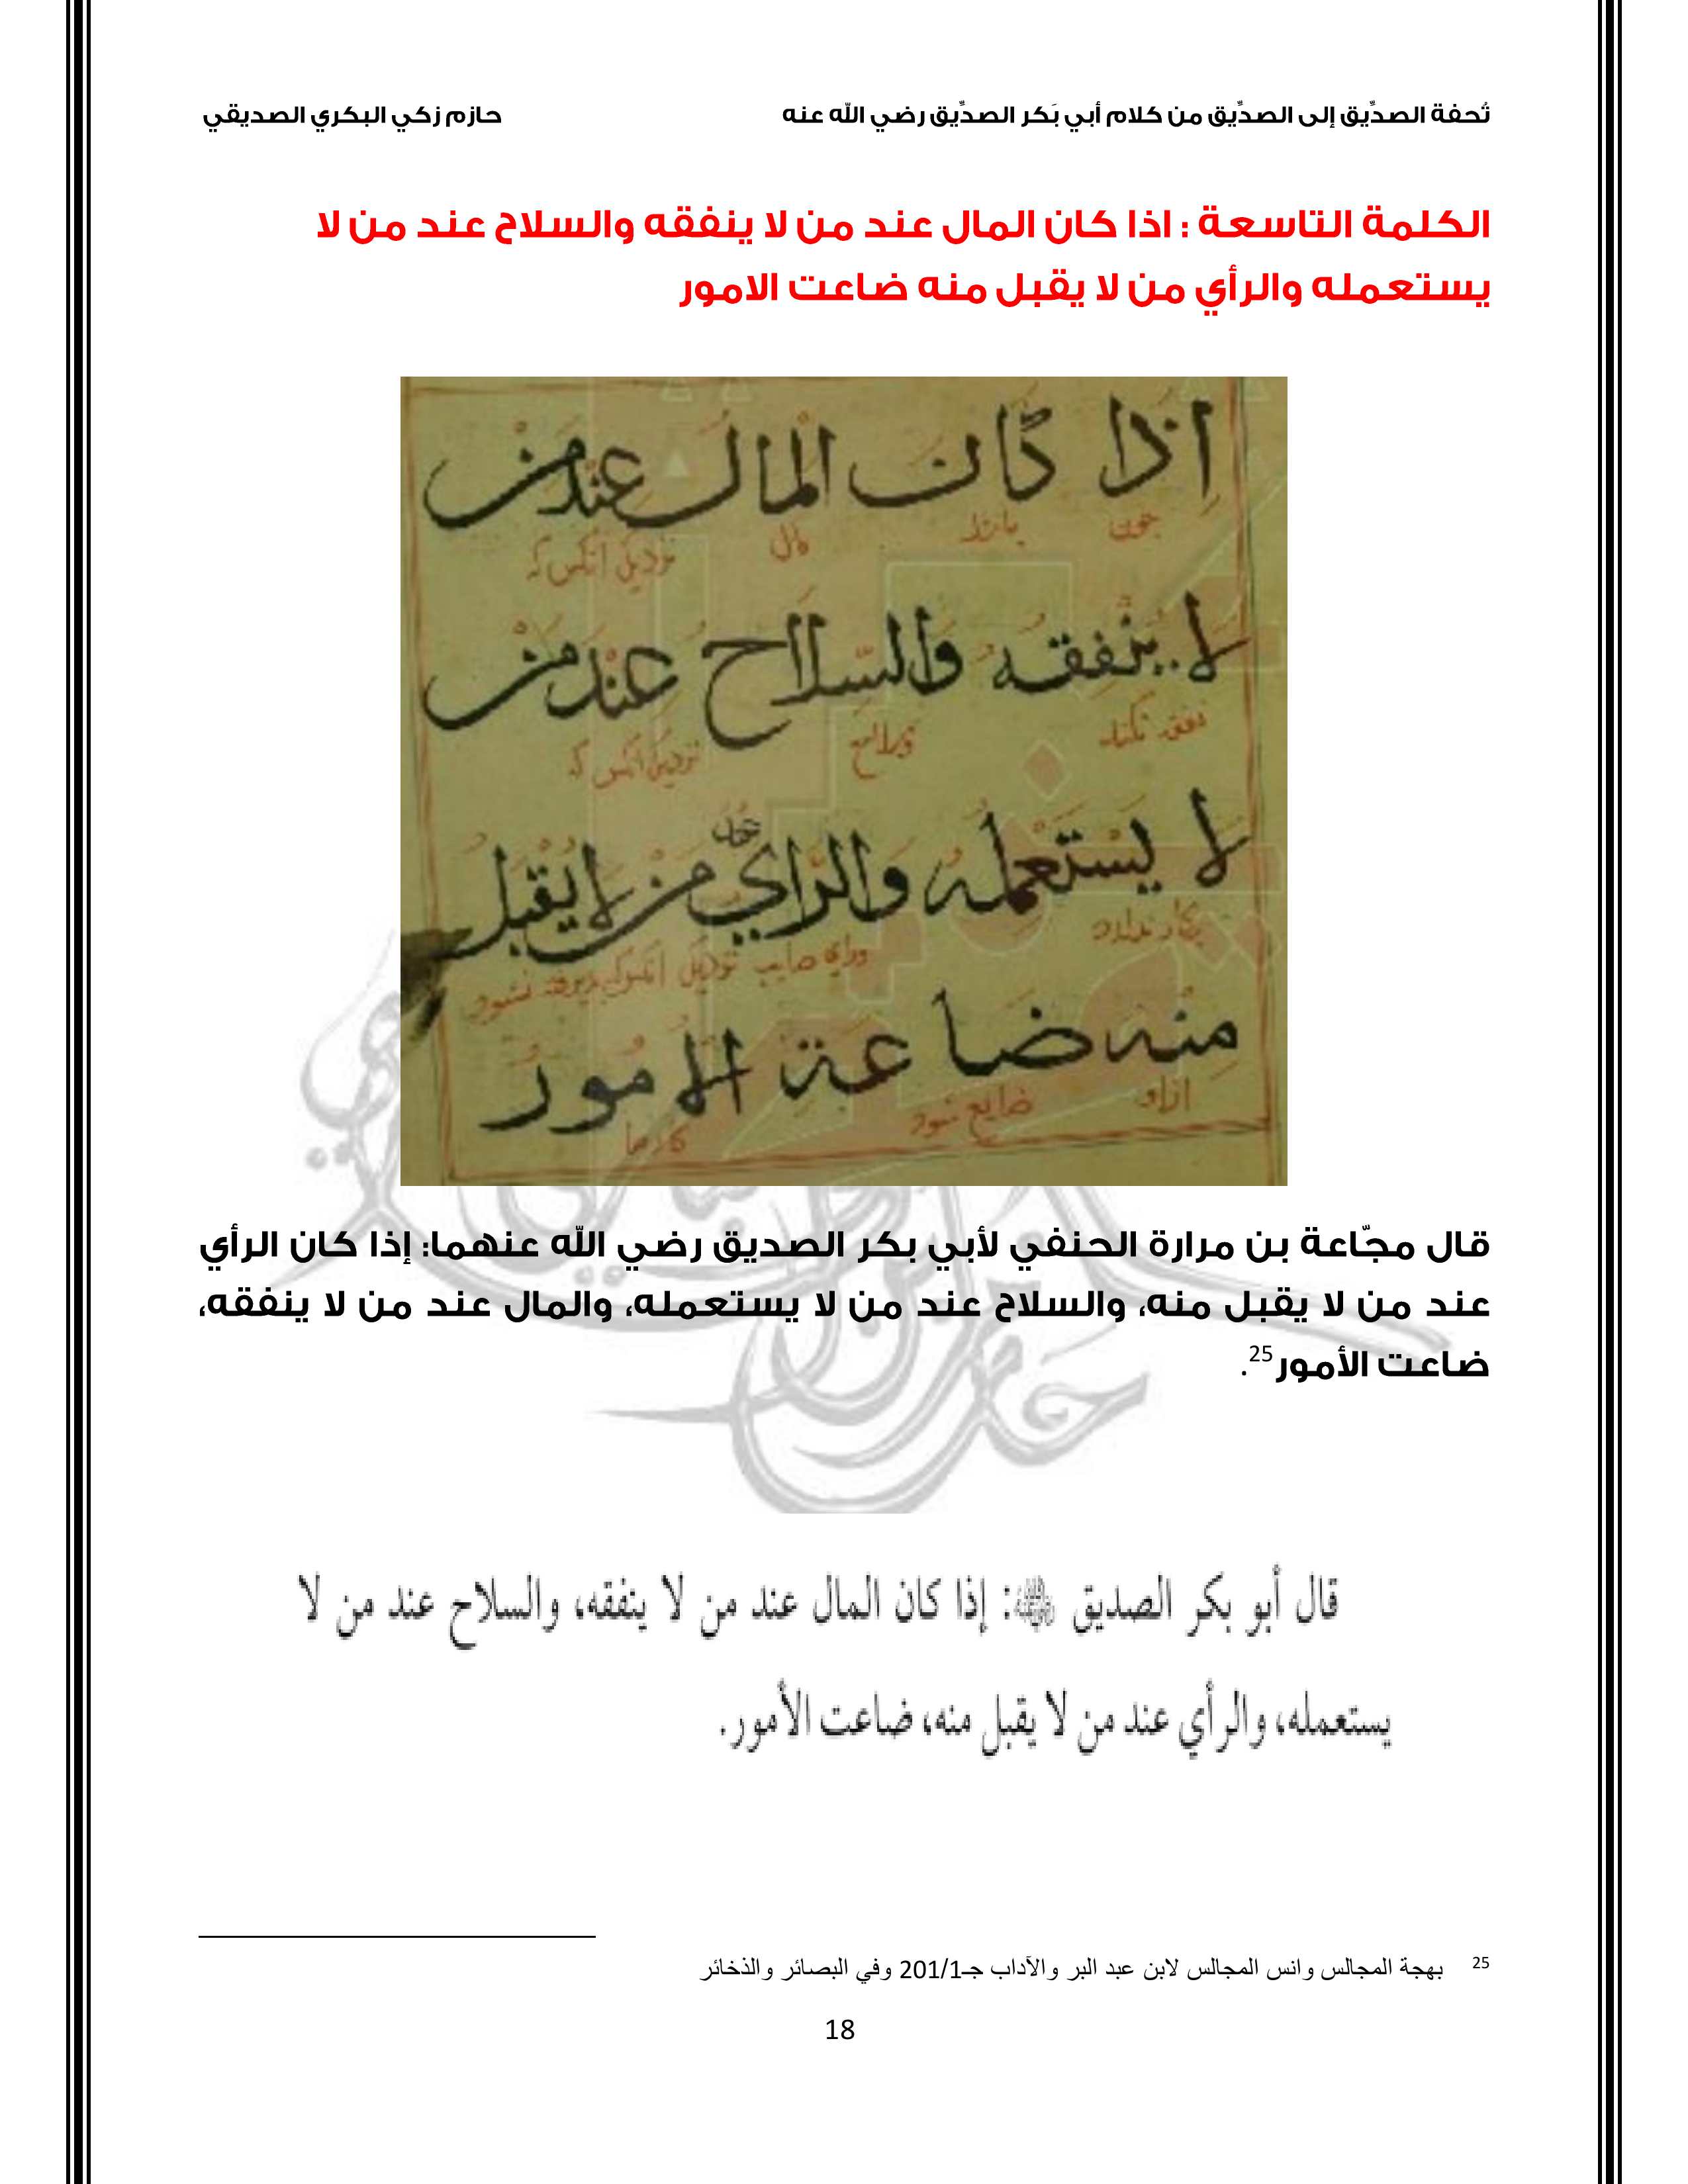 تُحفة الصدِّيق إلى الصدِّيق من كلام أبي بَكر الصدِّيق رضي الله عنه حازم زكي البكري الصديقي
الكلمة التاسعة : اذا كان المال عند من لا ينفقه والسلاح عند من لا
يستعمله والرأي من لا يقبل منه ضاعت الامور
اِذَا كَانَ الْمَالُ عِنْدَ مَنْ
چون مال نزدیک آنکس که
لَا يُنْفِقُهُ وَالسِّلَاحُ عِنْدَ مَنْ
نفقه نکند نزدیک آنکس که
لَا يَسْتَعْمِلُهُ وَالرَّايُ مَنْ لَا يُقْبَلُ
ورای صایب نزدیک آنکس
مِنْهُ ضَاعَةَ الْاُمُورُ
ازاو ضایع شود کارها
قال مجّاعة بن مرارة الحنفي لأبي بكر الصديق رضي الله عنهما: إذا كان الرأي
عند من لا يقبل منه، والسلاح عند من لا يستعمله، والمال عند من لا ينفقه،
ضاعت الأمور25.
قال أبو بكر الصديق رضي الله عنه: إذا كان المال عند من لا ينفقه، والسلاح عند من لا
يستعمله، والرأي عند من لا يقبل منه، ضاعت الأمور.
25 بهجة المجالس وانس المجالس لابن عبد البر والآداب جـ201/1 وفي البصائر والذخائر
18